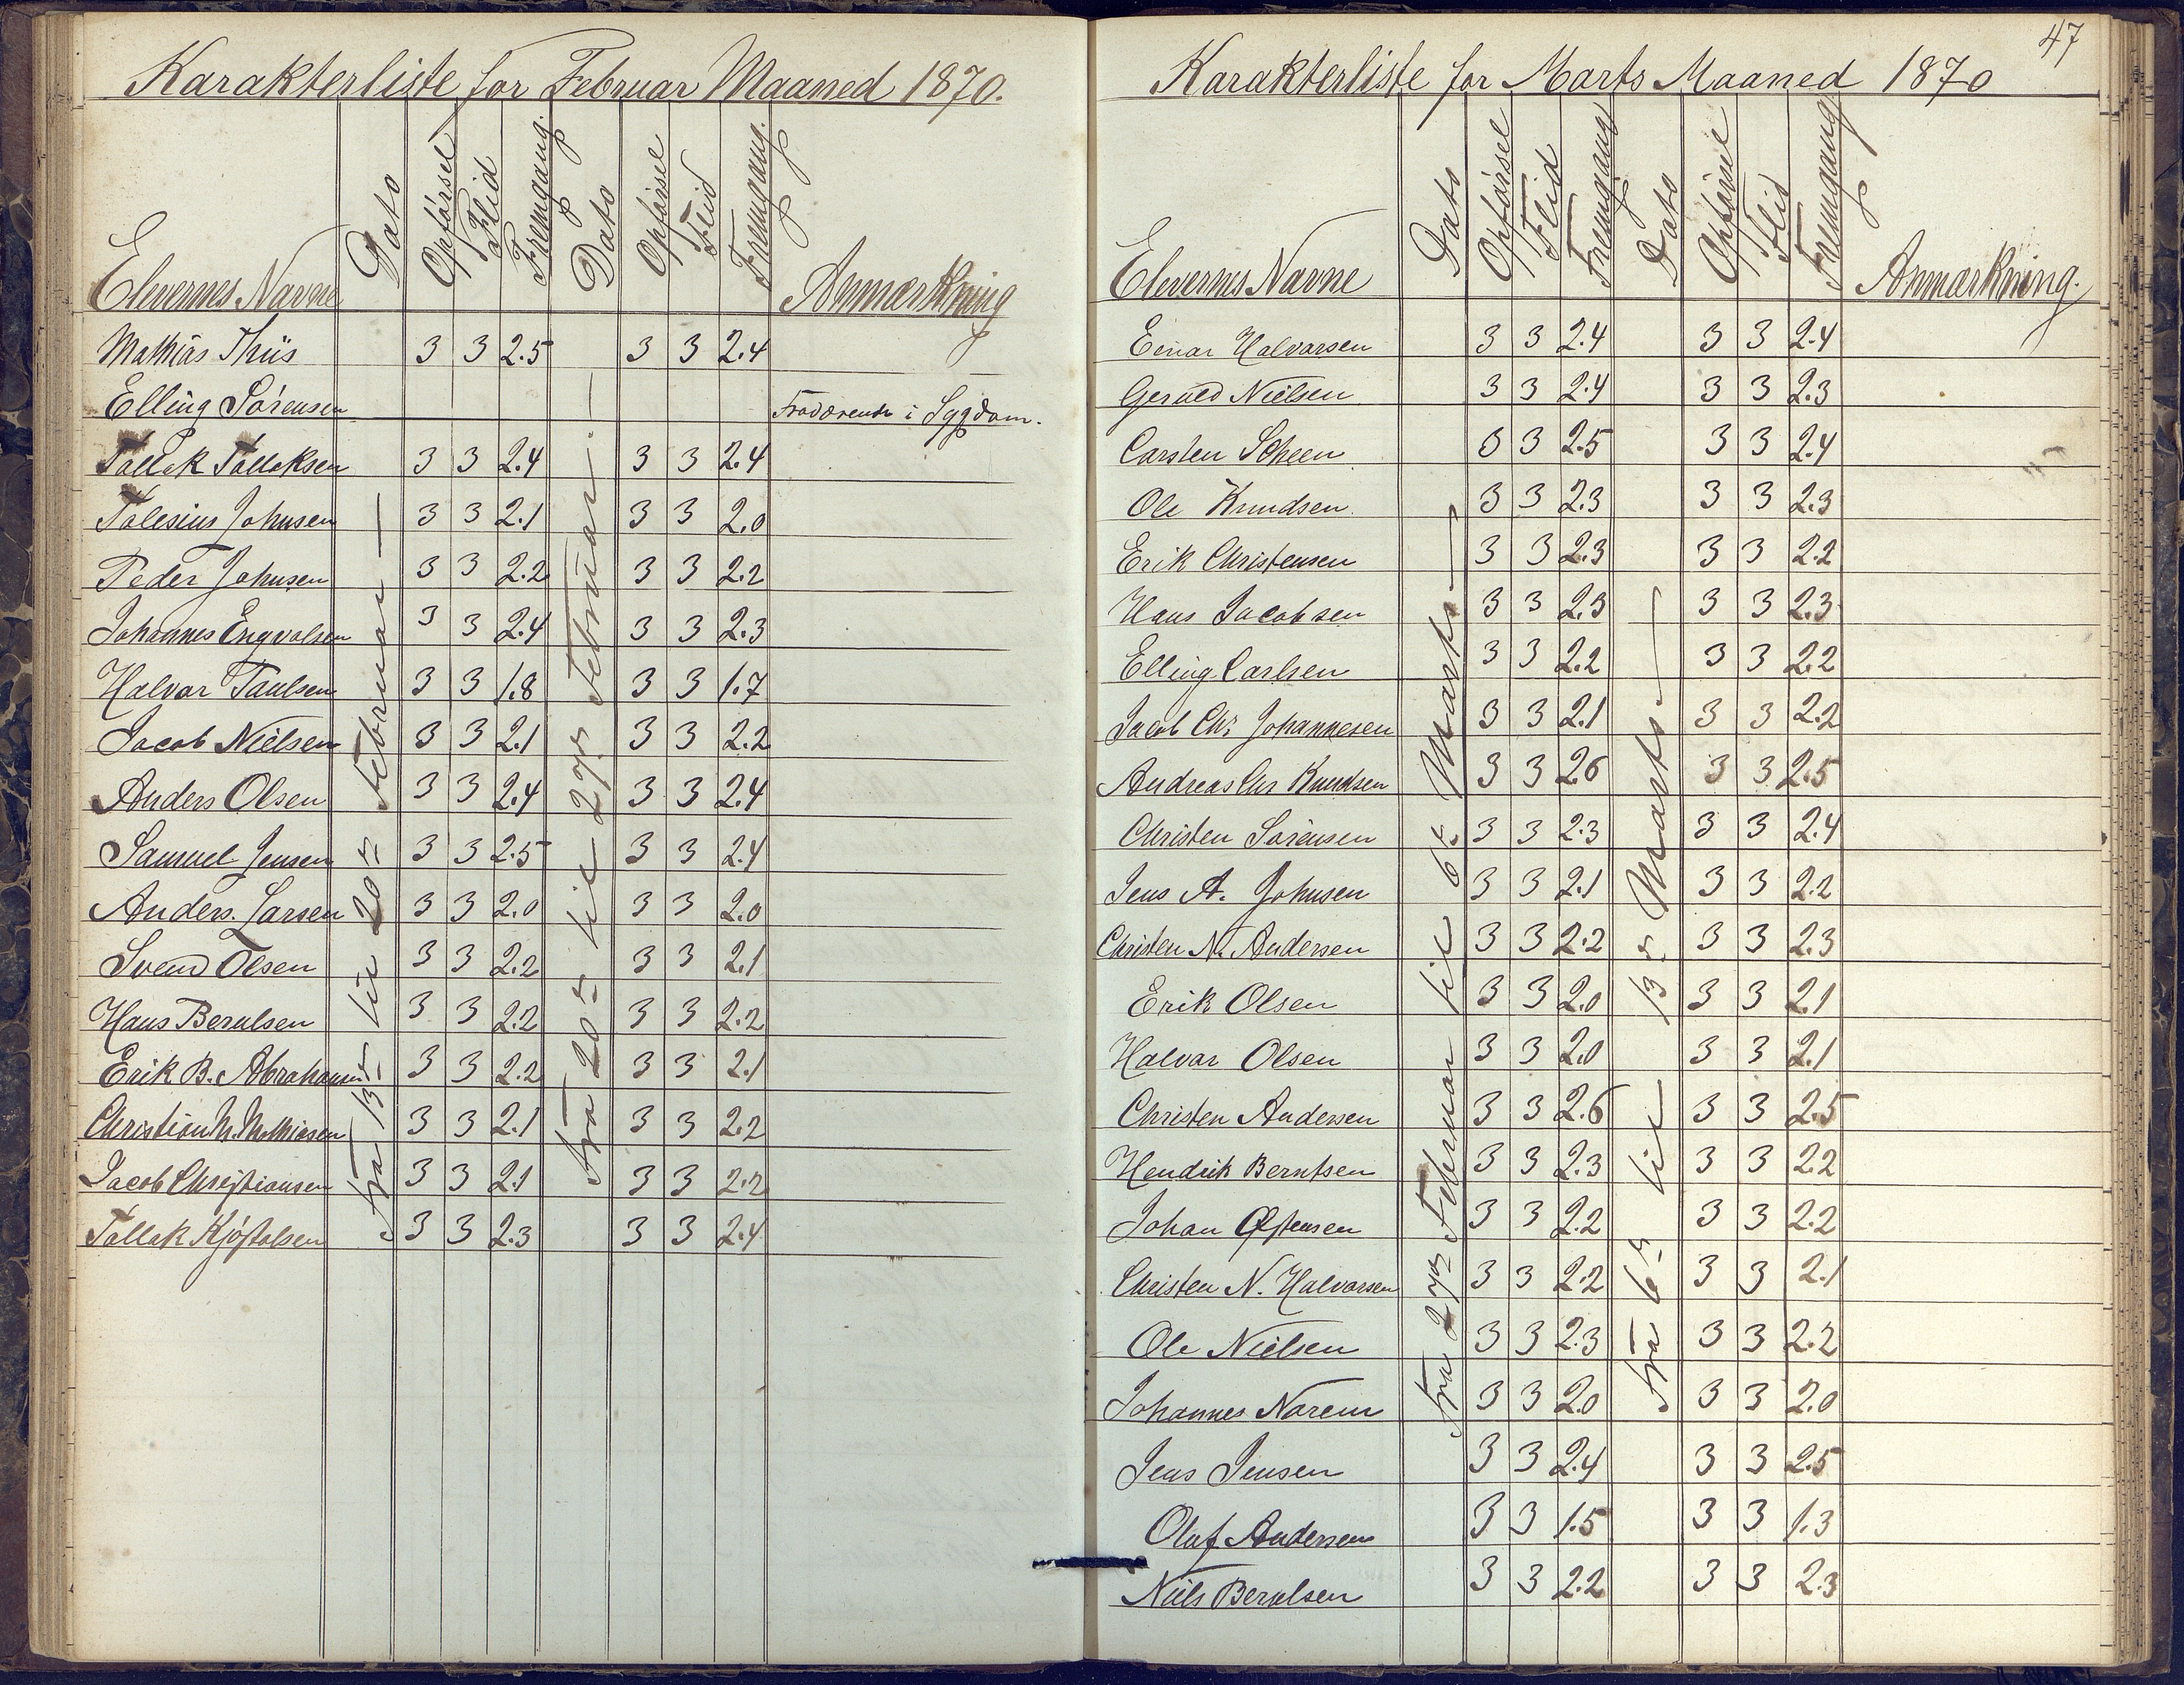 Karakterliste for Februar Maaned 1870.
Elevernes Navne Dato Opførsel Flid Fremgang. Dato Opførsel Flid Fremgang. Anmærkning
Mathias Thiis 3 3 2.5 3 3 2.4
Elling Sørensen Fraværende i Sygdom.
Tallak Tallaksen 3 3 2.4 3 3 2.4
Talesius Johnsen 3 3 2.1 3 3 2.0
Peder Johnsen 3 3 2.2 3 3 2.2
Johannes Engvalsen 3 3 2.4 3 3 2.3
Halvor Paulsen 3 3 1.8 3 3 1.7
Jacob Nielsen 3 3 2.1 3 3 2.2
Anders Olsen 3 3 2.4 3 3 2.4
Samuel Jensen 3 3 2.5 3 3 2.4
Anders. Larsen 3 3 2.0 3 3 2.0
Svend Olsen 3 3 2.2 3 3 2.1
Hans Berulsen 3 3 2.2 3 3 2.2
Erik B. Abrahamsen 3 3 2.2 3 3 2.1
Christian M. Mathiasen 3 3 2.1 3 3 2.2
Jacob Christiansen 3 3 2.1 3 3 2.2
Tallak Kjøstolsen 3 3 2.3 3 3 2.4
fra 13de til 20de Februar
fra 20de til 27de Februar.
47
Karakterliste for Marts Maaned 1870
Elevernes Navne Dato Opførsel Flid Fremgang Dato Opførsel Flid Fremgang Anmærkning.
Einar Halvorsen 3 3 2.4 3 3 2.4
Gerald Nielsen 3 3 2.4 3 3 2.3
Carsten Scheen 3 3 2.5 3 3 2.4
Ole Knudsen. 3 3 2.3 3 3 2.3
Erik Christensen 3 3 2.3 3 3 2.2
Hans Jacobsen 3 3 2.3 3 3 2.3
Elling Carlsen 3 3 2.2 3 3 2.2
Jacob Chr Johannesen 3 3 2.1 3 3 2.2
Andreas Chr Knudsen 3 3 26 3 3 2.5
Christen Sørensen 3 3 2.3 3 3 2.4
Jens A. Johnsen 3 3 2.1 3 3 2.2
Christen N. Andersen 3 3 2.2 3 3 2.3
Erik Olsen 3 3 2.0 3 3 2.1
Halvor Olsen 3 3 2.0 3 3 2.1
Christen Andersen 3 3 2.6 3 3 2.5
Hendrik Berntsen 3 3 2.3 3 3 2.2
Johan Østensen 3 3 2.2 3 3 2.2
Christen N. Halvorsen 3 3 2.2 3 3 2.1
Ole Nielsen 3 3 2.3 3 3 2.2
Johannes Narem 3 3 2.0 3 3 2.0
Jens Jensen 3 3 2.4 3 3 2.5
Olaf Andersen 3 3 1.5 3 3 1.3
Niels Berulsen 3 3 2.2 3 3 2.3
fra 27de Februar til 6te Marts
fra 6te til 13de Marts